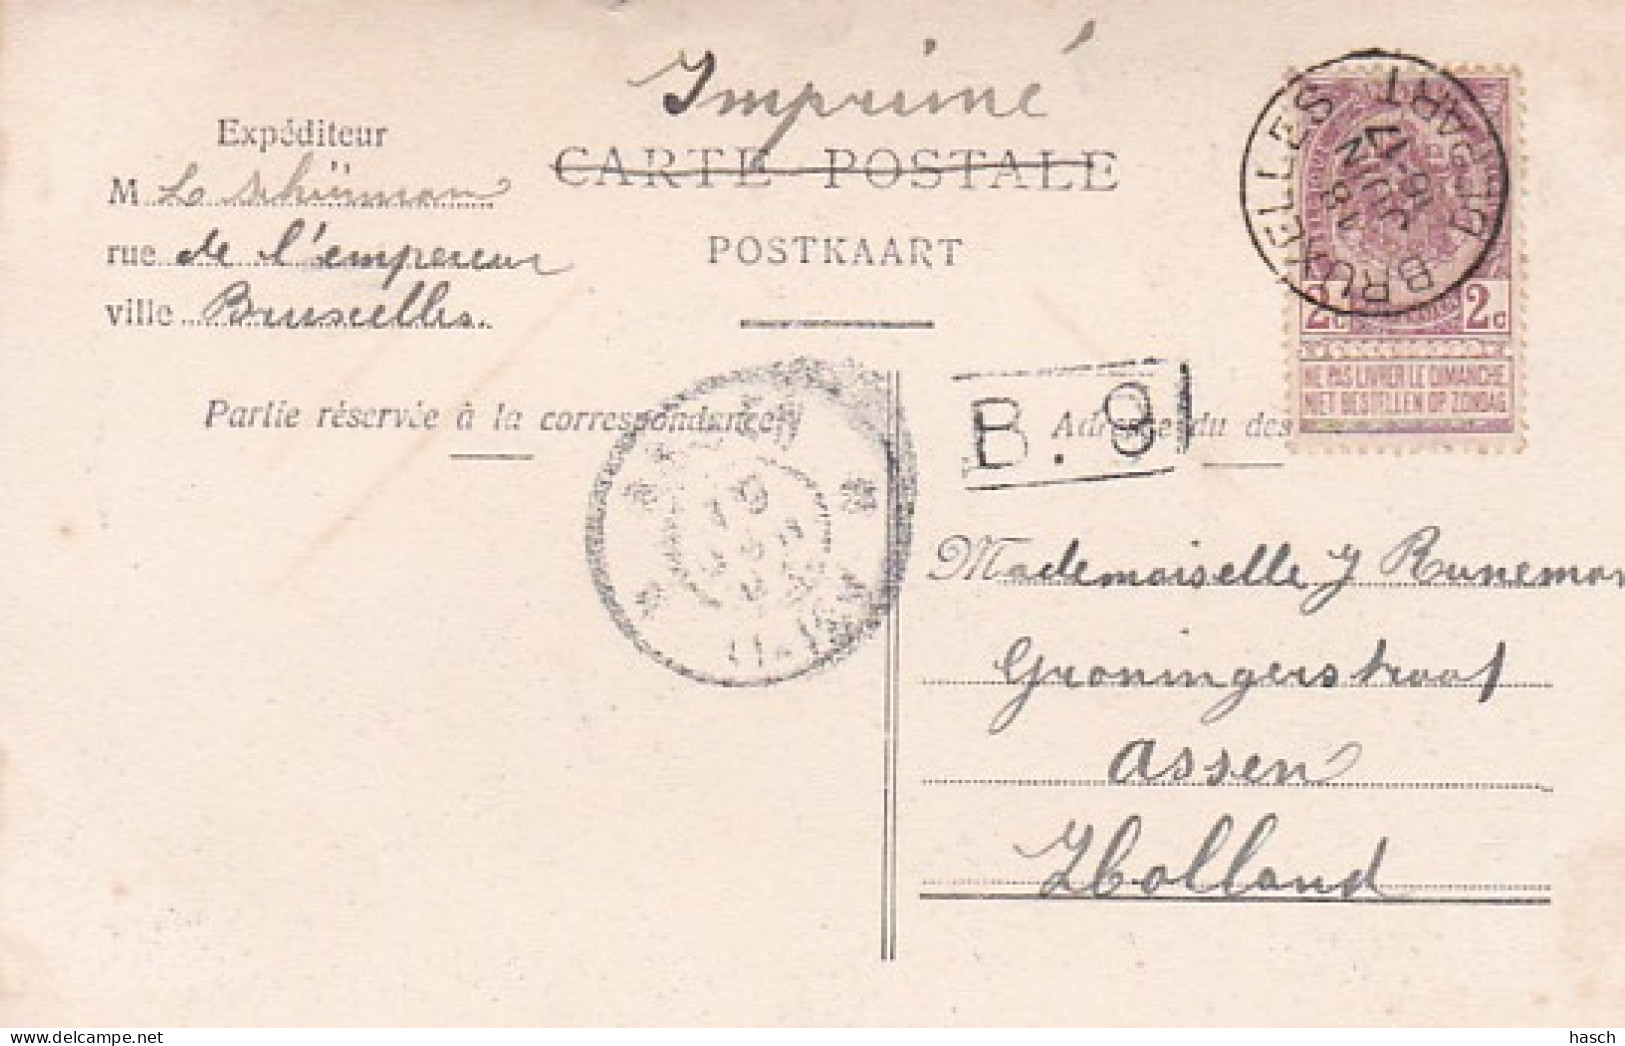 Imprimé
CARTE POSTALE
POSTKAART
Expéditeur
M L Schürman
rue de l'empereur
ville Bruxelles.
Partie réservée à la correspondance
BRUXELLES DÉPART
18 JUIN 16-17
2c 2c
NE PAS LIVRER LE DIMANCHE
NIET BESTELLEN OP ZONDAG
B. 91
Adresse du des
ASSEN
Mademoiselle J Runeman
Groningerstraat
Assen
Holland
www.delcampe.net
hasch